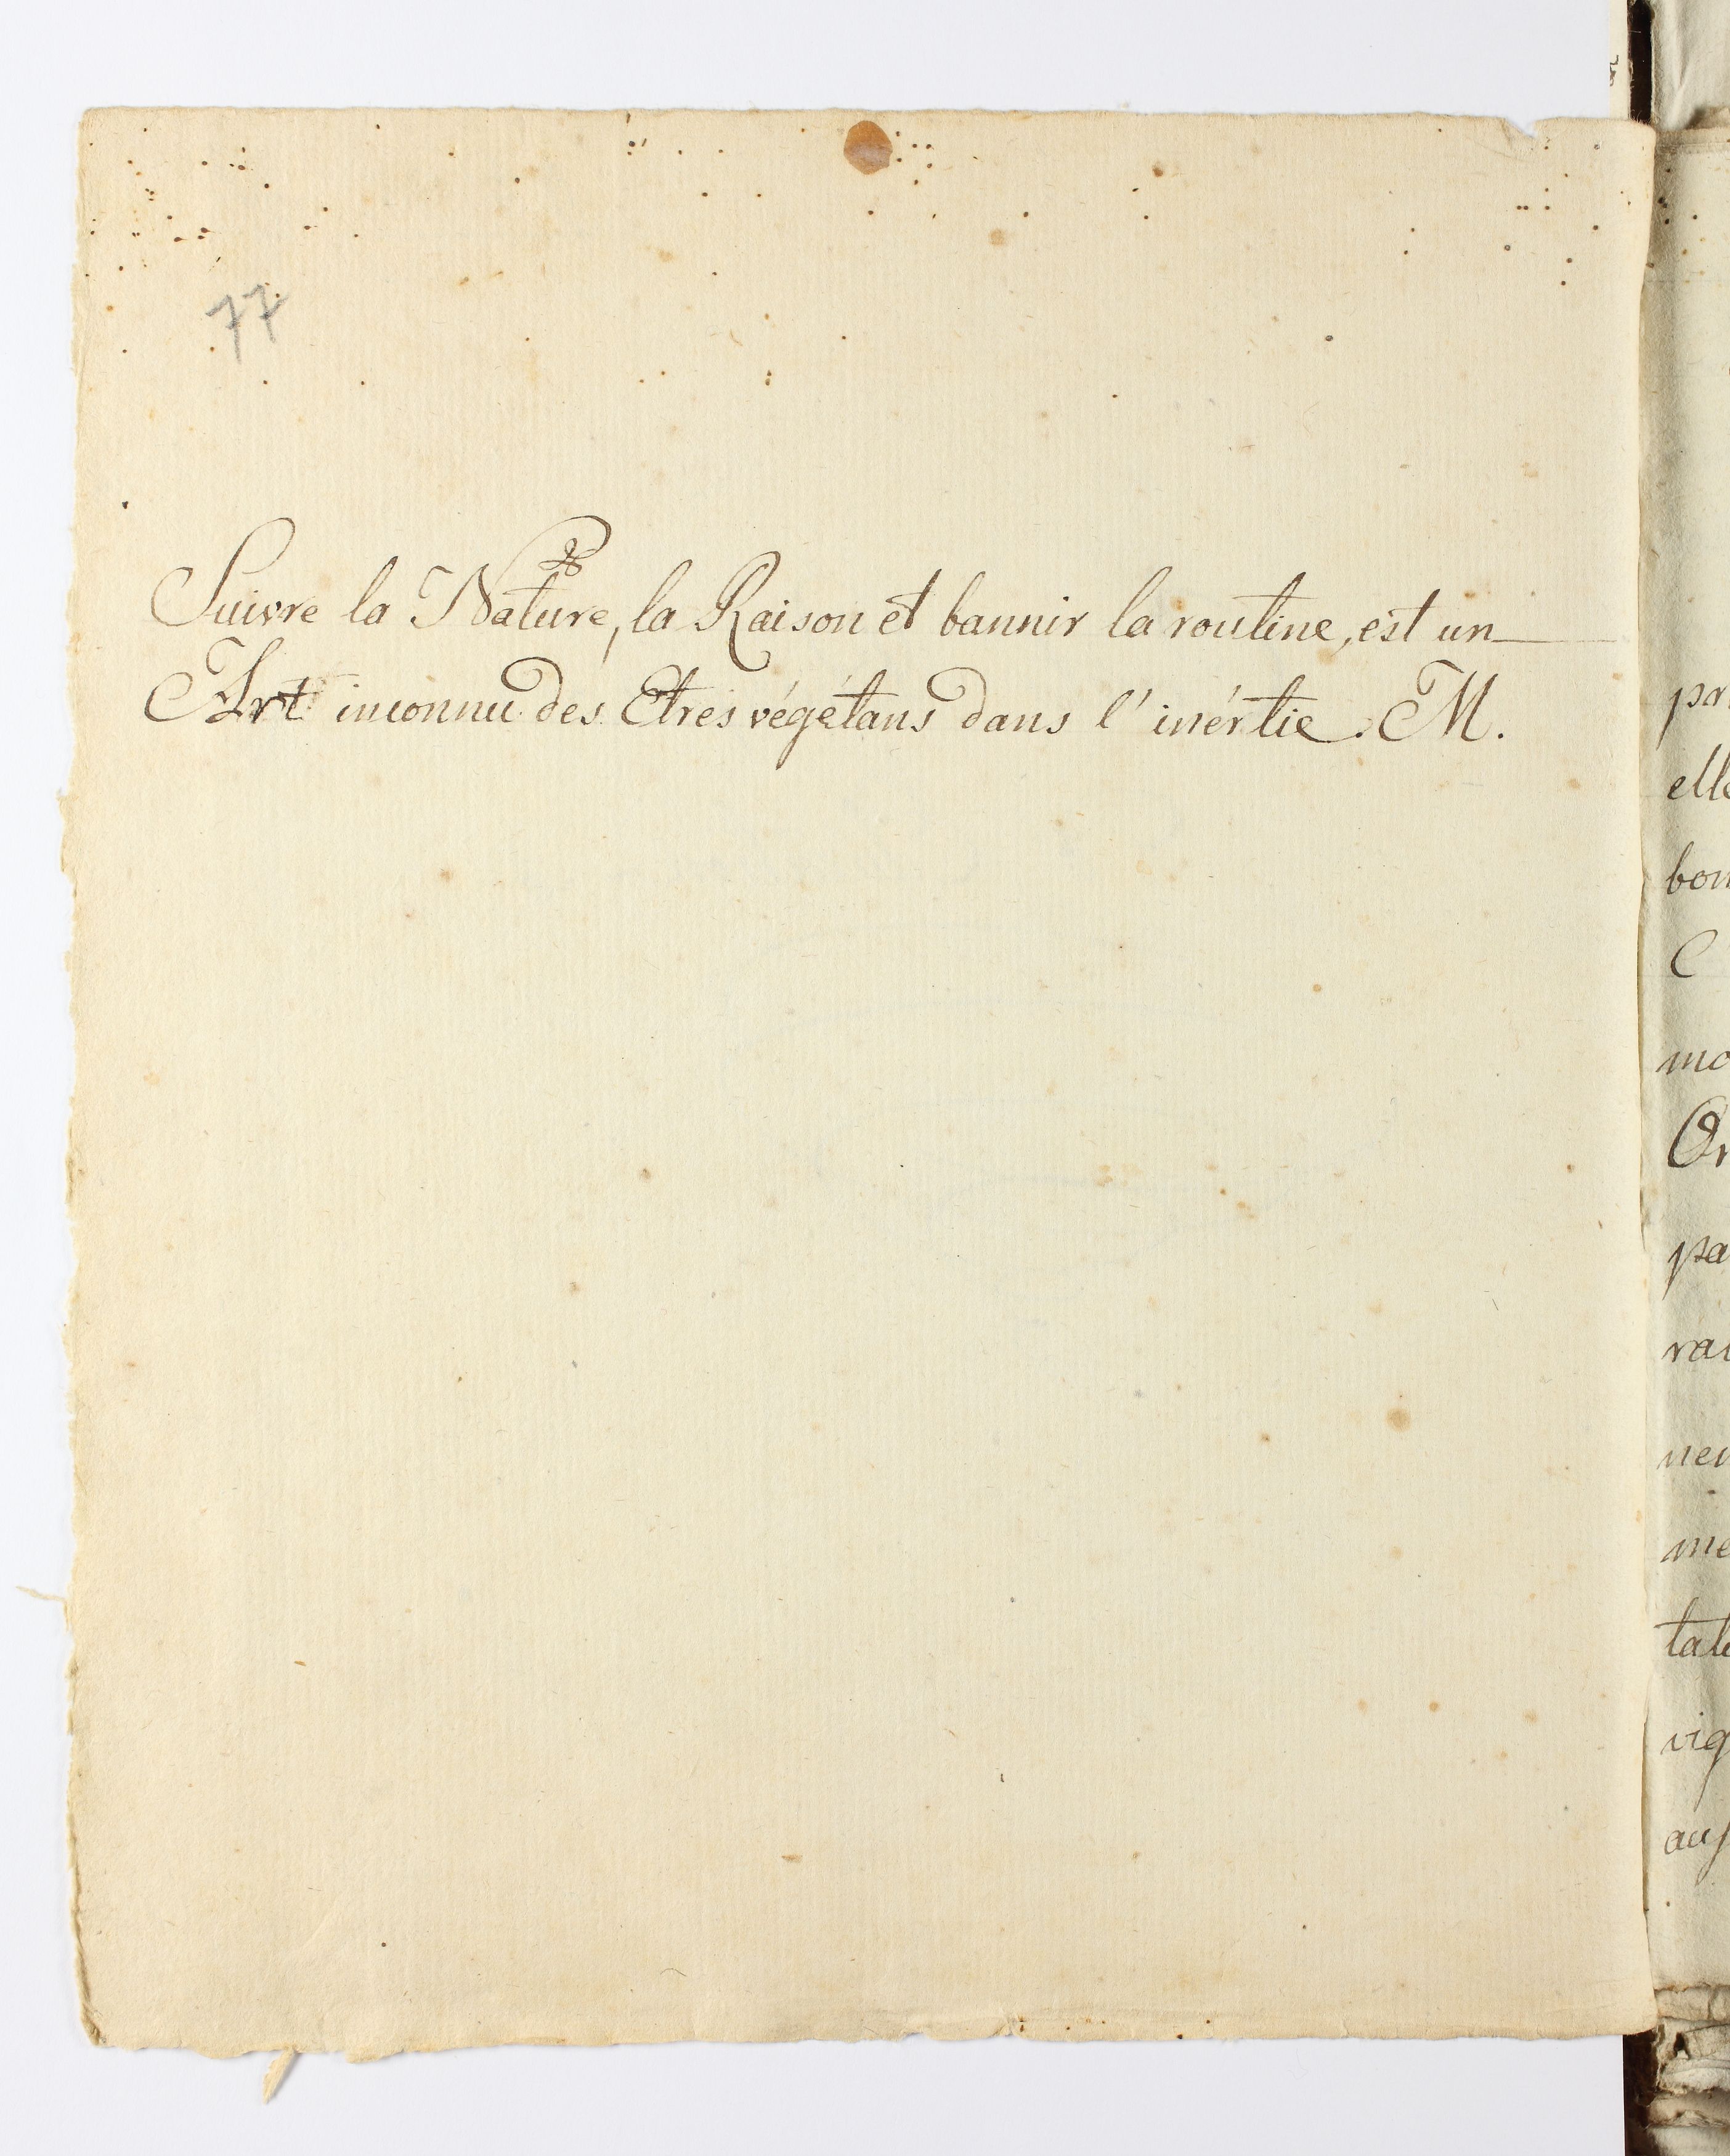 77
Suivre la Nature, la Raison et bannir la routine, est un
Art inconnu des Etres végétans dans l'inértie. M.
par
elle
bon
C
mo
Or
pa
rai
neu
me
tale
vig